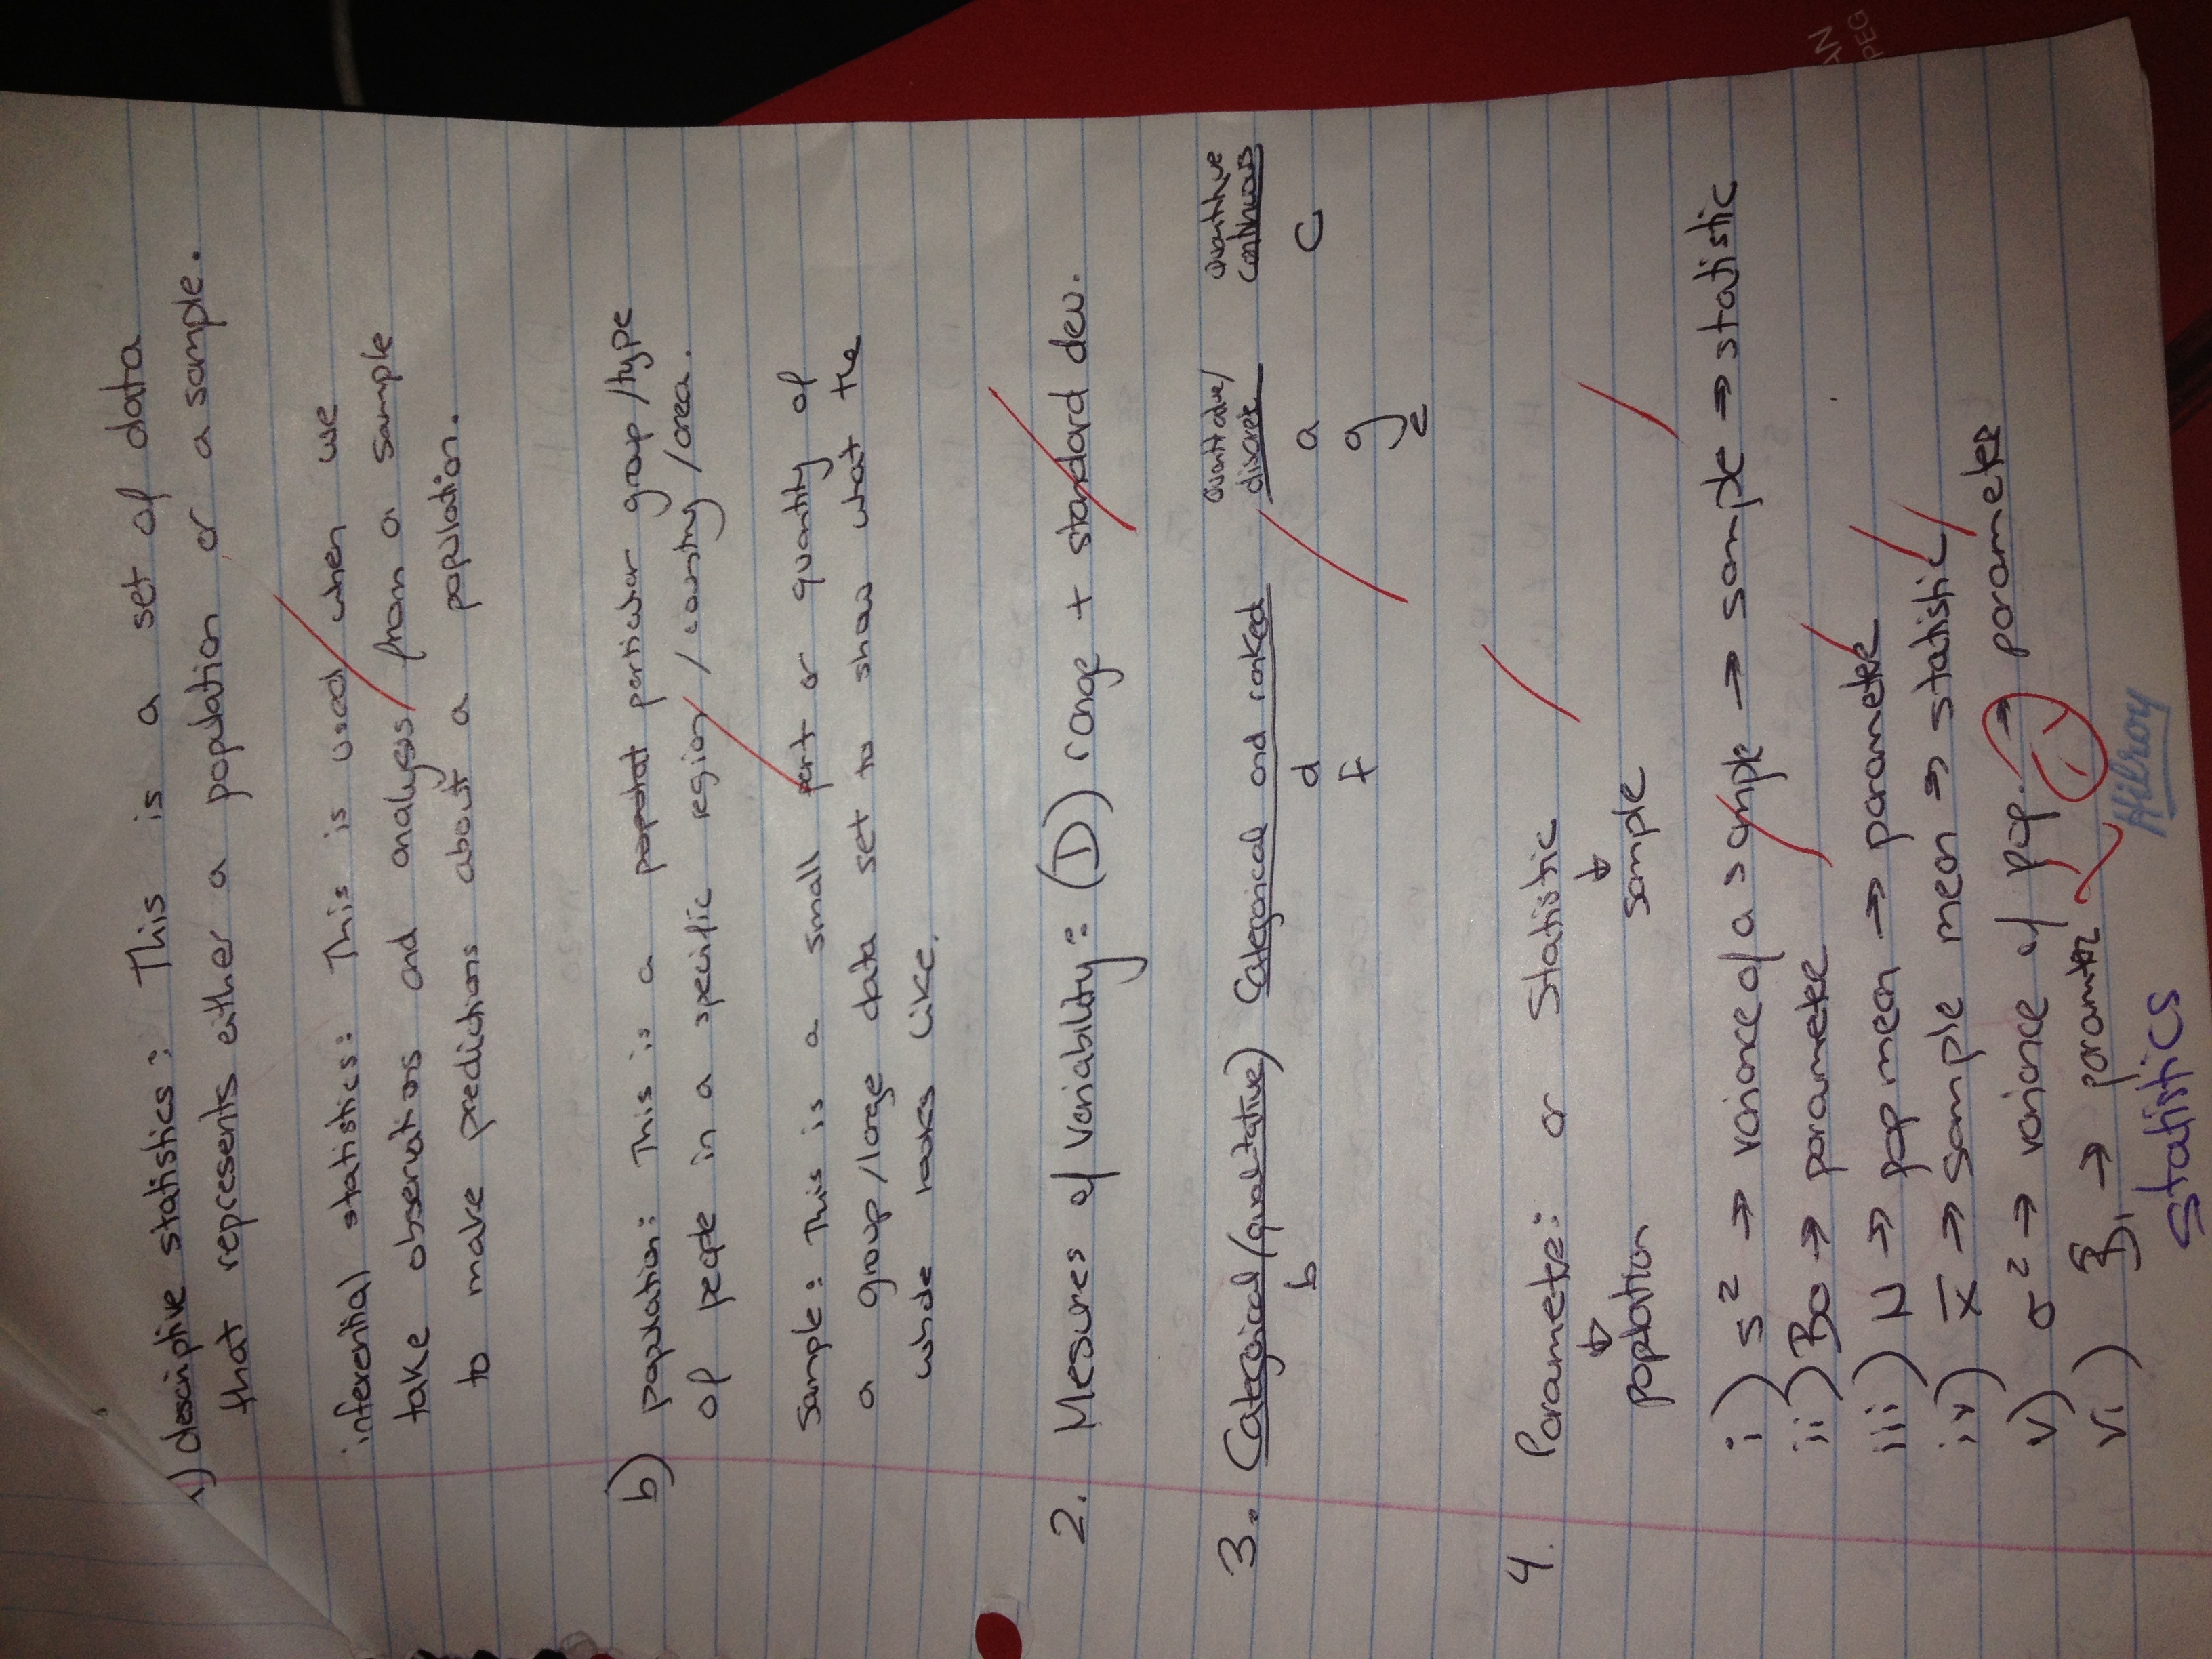 1) descriptive statistics: This is a set of data
that represents either a population or a sample.
inferential statistics: This is used when we
take observations and analysis from a sample
to make predictions about a population.
b) population: This is a perticular group/type
of people in a specific region/country/area.
sample: This is a small part or quantity of
a group/large data set to show what the
whole looks like.
2. Mesures of variability: (D) range + standard dev.
3. Categorical/(qualitative) Categorical and ranked quantitative/ discrete quantitive continuous
b d a c
f g
e
4. Parameter: or Statistic
↓ ↓
poplation sample
i) s² → varience of a sample → sample → statistic
ii) Bo → parameter
iii) N → pop mean → parameter
iv) x̄ → sample mean → statistic
v) σ² → varience of pop. → parameter
vi) B₁ → paramter
Hilroy
statistics